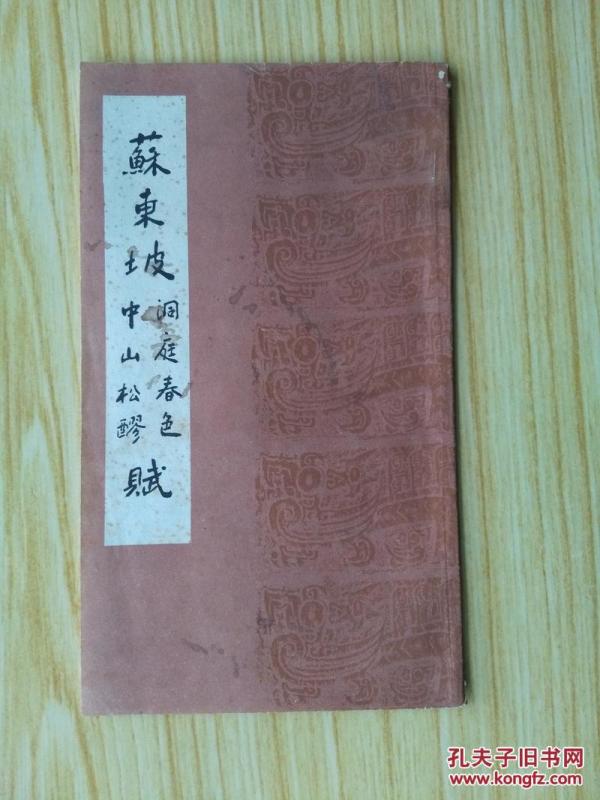 蘇東坡
洞庭春色
中山松醪
賦
孔夫子旧书网
www.kongfz.com